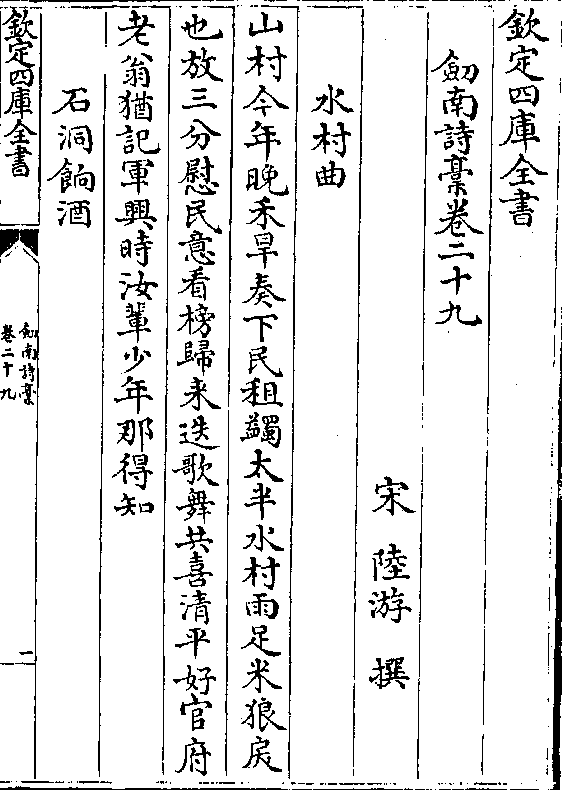 欽定四庫全書
劒南詩稾卷二十九
宋 陸游 撰
水村曲
山村今年晚禾旱奏下民租蠲太半水村雨足米狼戾
也放三分慰民意看榜歸来迭歌舞共喜清平好官府
老翁猶記軍興時汝輩少年那得知
石洞餉酒
欽定四庫全書
劒南詩稾
卷二十九
一